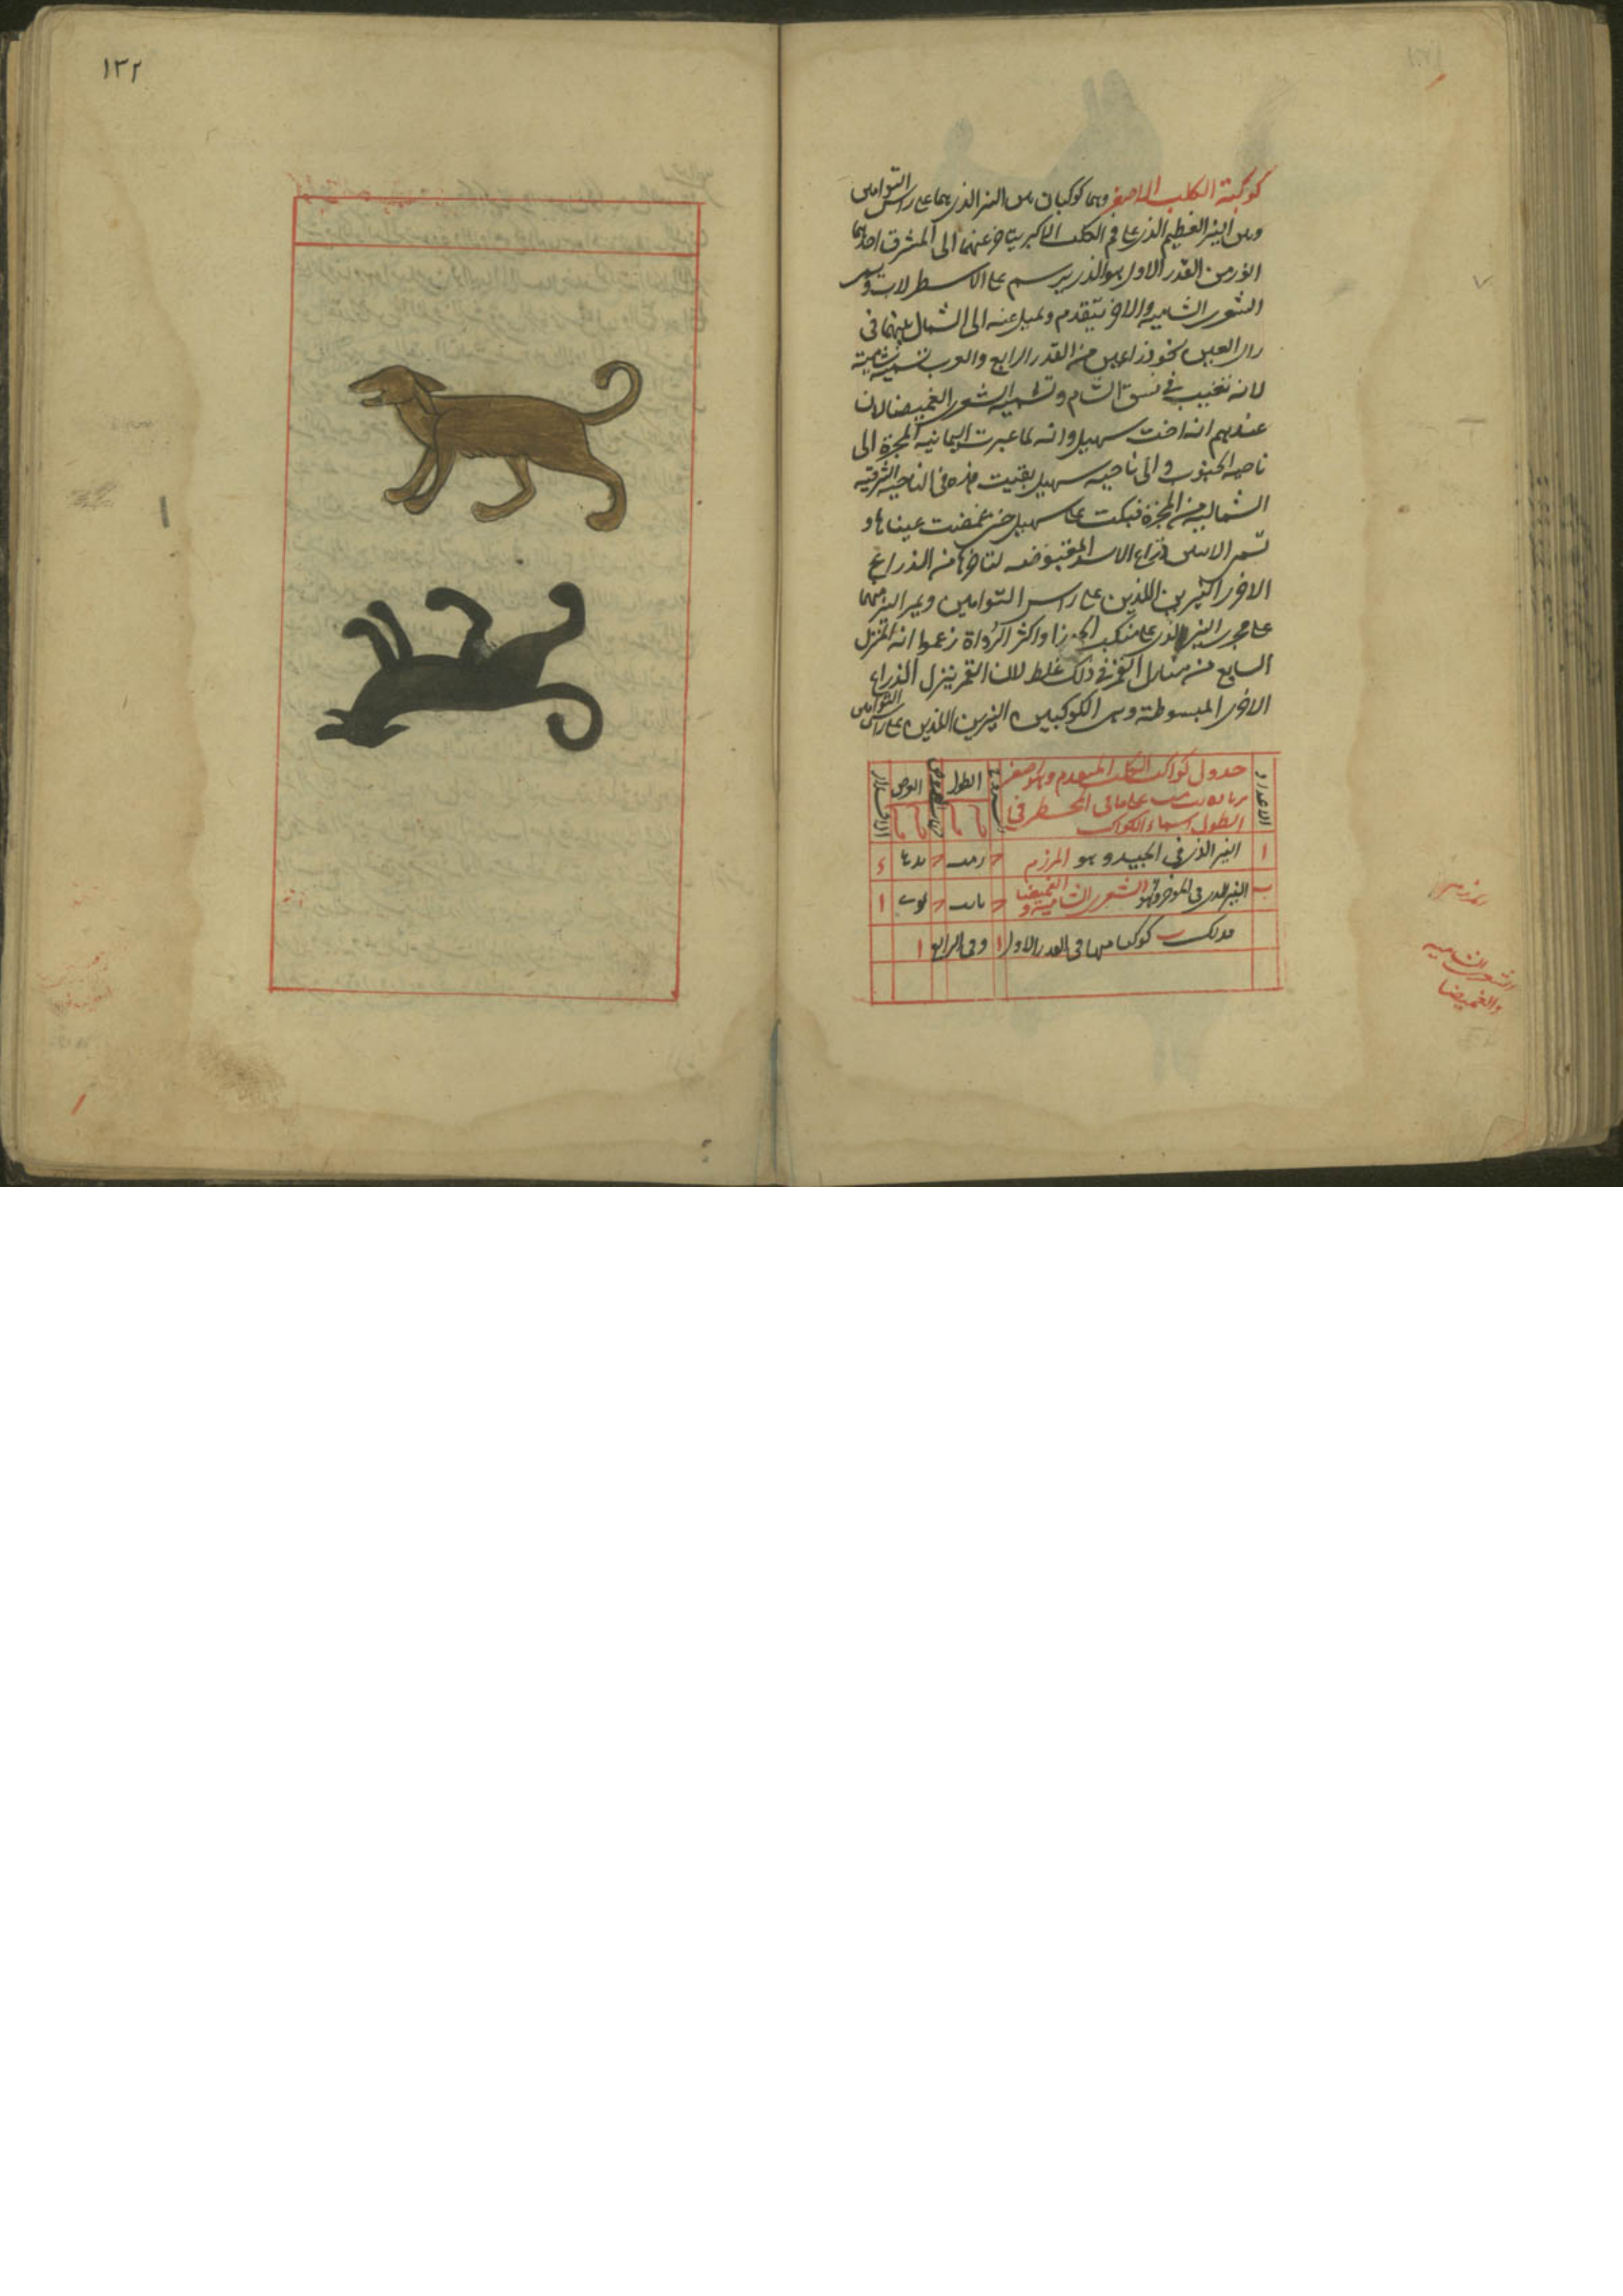 كوكبة الكلب الاصغر وهما كوكبان بين النير الذى هما على راس التوامين
وبين النير العظيم الذى على فم الكلب الاكبر يتاخر عنهما الى المشرق احدهما
انور من القدر الاول هو الذى يرسم على الاسطرلاب ويسمى
الشعرى الشامية والاخر يتقدم ويميل عنه الى الشمال بينهما فى
راى العين نحو ذراعين من القدر الرابع والعرب تسميه شامية
لانه تغيب فى شق الشام وتسميه الشعرى الغميصا لان
عندهم انه اخت سهيل وانه لما عبرت اليمانية المجرة الى
ناحية الجنوب والى ناحية سهيل بقيت هذه فى الناحية الشرقية
الشمالية من المجرة فبكت على سهيل حتى غمضت عيناها و
تسمى الاثنين ذراع الاسد المقبوضه لتاخرها من الذراع
الاخرى النيرين اللذين على راس التوامين ويمر النير منهما
على مجرى النير الذى على منكب الجوزا واكثر الرواة زعموا انه المنزل
السابع من منازل القمر فى ذلك غلط لان القمر ينزل الذراع
الاخرى المبسوطة وهى الكوكبين النيرين اللذين على راس التوامين
الاعداد جدول كواكب الكلب المتقدم وهو الاصغر الطول العرض الاقدار
على ما فى المجسطى فى
الطول اسماء الكواكب
ا النير الذى فى الجيد وهو المرزم
ب النير الذى فى الموخر وهو الشعرى الشامية و الغميضا ا
فذلك ب كوكبا منها فى القدر الاول ا وفى الرابع ا
الشعرى الشاميه
والغميضا
١٣٢